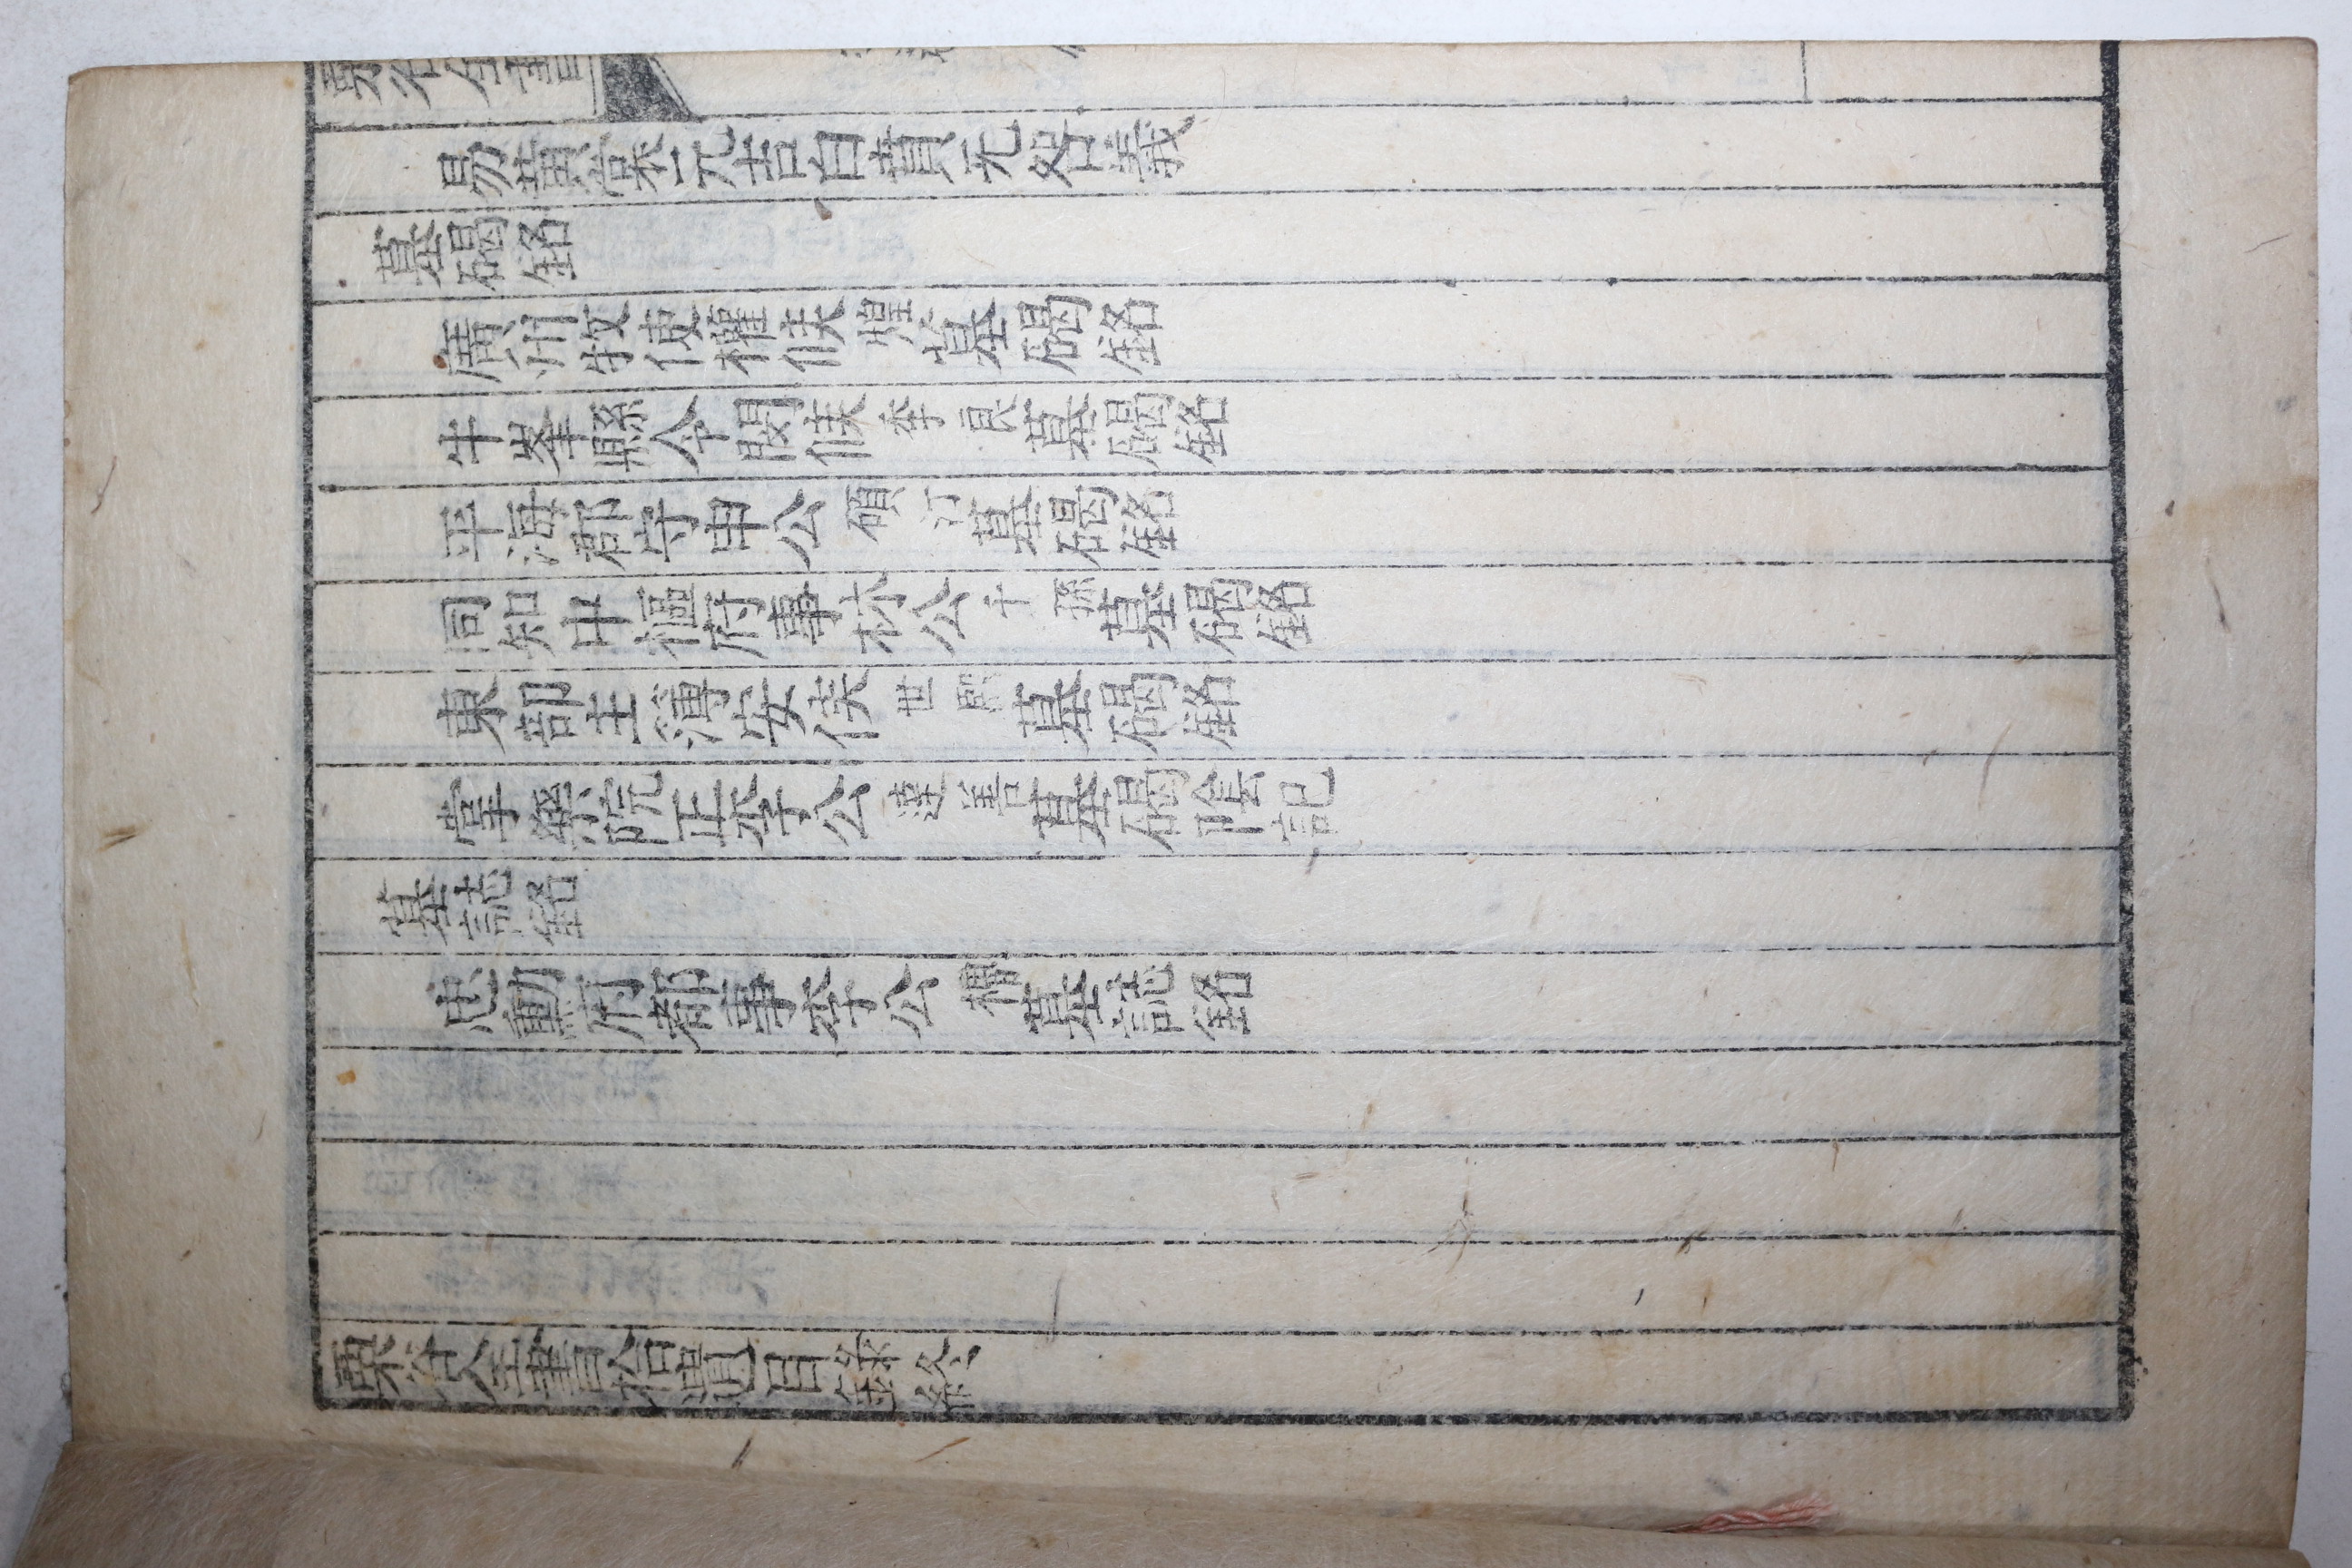 栗谷全書
易黃裳元吉白賁无咎義
墓碣銘
廣州牧使權候煌墓碣銘
牛峯縣令閔候季良墓碣銘
平海郡守申公碩汀墓碣銘
同知中樞府事林公千孫墓碣銘
東部主簿安侯世熙墓碣銘
掌樂院正李公達善墓碣陰記
墓誌銘
忠勳府都事李公墓誌銘
栗谷全書拾遺目錄終